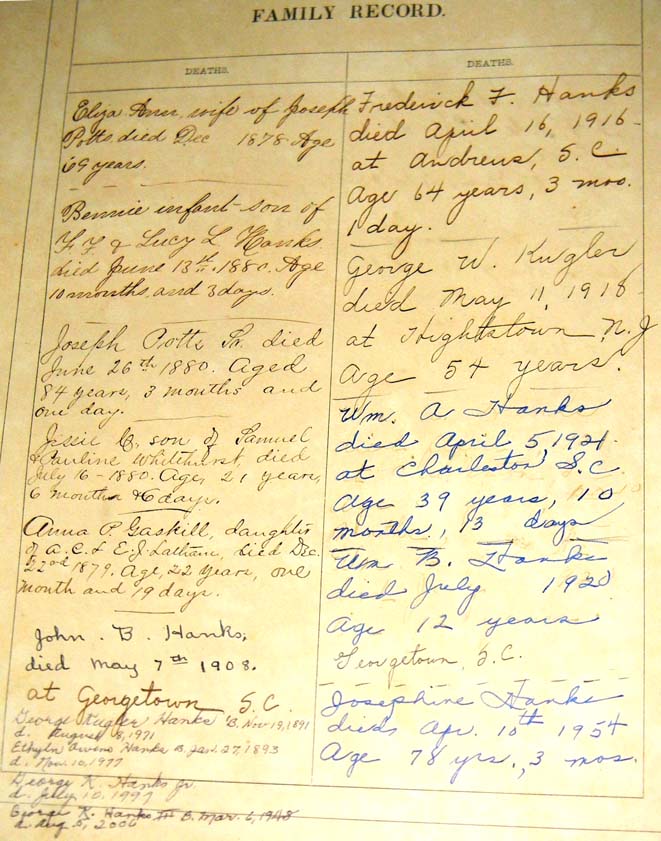 FAMILY RECORD.
DEATHS.
Eliza Ann, wife of Joseph
Potts died Dec 1878 Age
69 years.
Bennie infant son of
F. F. & Lucy L Hanks
died June 13th 1880. Age
10 months, and 3 days.
Joseph Potts Sr. died
June 26th 1880. Aged
84 years, 3 months and
one day.
Jessie B, son of Samuel
& Pauline Whitehurst, died
July 16 - 1880. Age, 21 years,
6 months & 6 days.
Anna P. Gaskill, daughter
of A. C. & E. J. Latham, died Dec.
22nd 1879. Age, 22 years, one
month and 19 days.
John . B. Hanks,
died May 7th 1908.
at Georgetown S. C.
George Kugler Hanks B. Nov 19, 1891
d. August 8, 1971
Ethyln Owens Hanks B. Jan. 27, 1893
d. Nov. 10, 1977
George K. Hanks Jr.
d. July 10, 1997
George K. Hanks III B. Mar. 6, 1948
d. Aug 5, 2006
DEATHS.
Frederick F. Hanks
died April 16, 1916
at Andrews, S. C.
Age 64 years, 3 mos.
1 day.
George W. Kugler
died May 11, 1916
at Hightstown N. J
Age 54 years.
Wm. A Hanks
died April 5, 1921.
at Charleston, S. C.
Age 39 years, 10
months, 13 days
Wm B. Hanks
died July 1920
Age 12 years
Georgetown, S. C.
Josephine Hanks
died Apr. 10th 1954
Age 78 yrs., 3 mos.